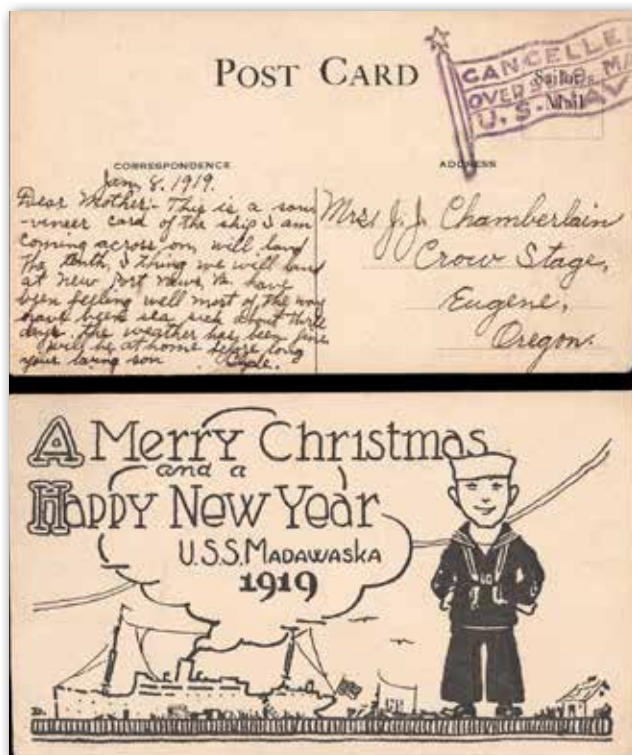 POST CARD
CANCELLED
OVERSEAS MA
U.S. NAV
Sailor's
Mail
CORRESPONDENCE
ADDRESS
Jan, 8. 1919.
Dear Mother:- This is a sou
-vineer card of the ship I am
coming across on, will land
the tenth, I think we will land
at New Port News, Va. have
been feeling well most of the way
have been sea sick about three
days. the weather has been fine
will be at home before long
your loving son Clyde.
Mrs J. J. Chamberlain
Crow Stage,
Eugene,
Oregon.
A Merry Christmas
and a
Happy New Year
U.S.S. MADAWASKA
1919